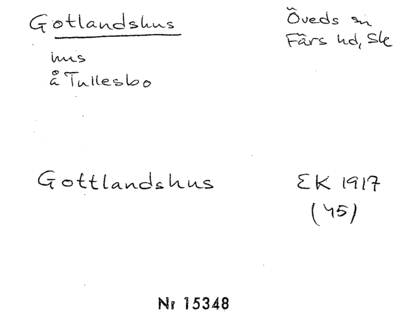 Gotlandshus
Öveds sn
Färs hd, Sk
hus
å Tullesbo
Gottlandshus
EK 1917
(45)
Nr 15348